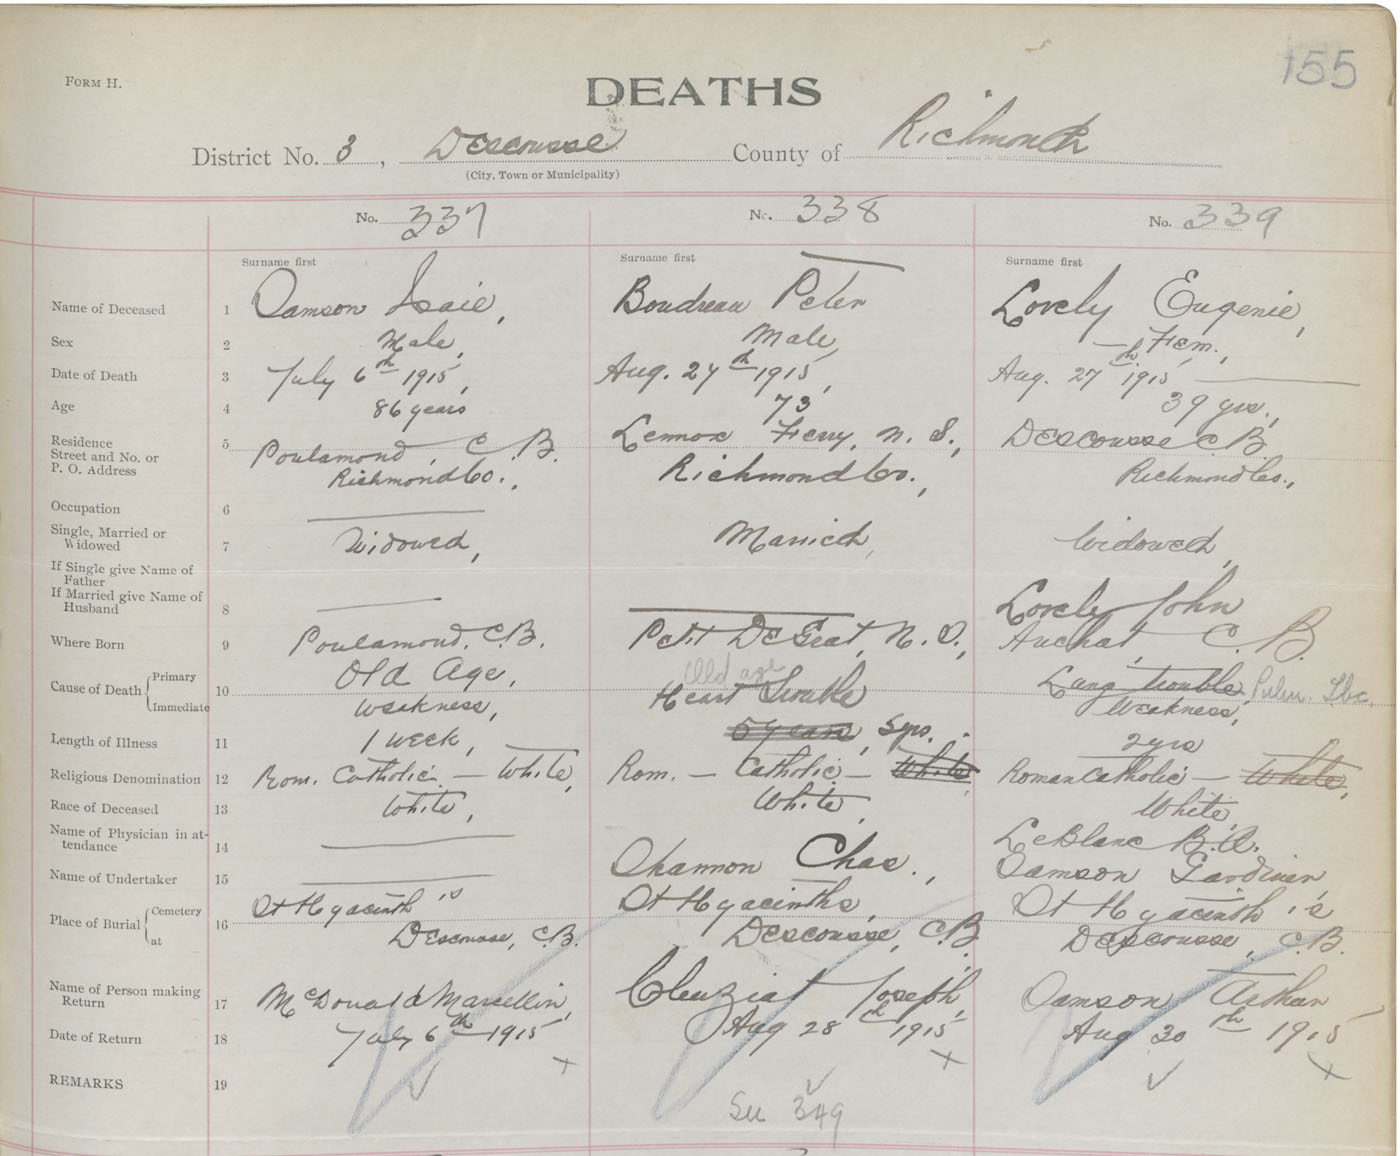 155
FORM H.
DEATHS
District No. 3, Descousse County of Richmond
(City, Town or Municipality)
No. 337 No. 338 No. 339
Surname first Surname first Surname first
Name of Deceased 1 Samson Isaie, Boudreau Peter Lovely Eugenie,
Sex 2 Male, Male, Fem.,
Date of Death 3 July 6th 1915, Aug. 27th 1915, Aug. 27th 1915
Age 4 86 years 73 39 yrs.,
Residence Street and No. or P. O. Address 5 Poulamond, C.B. Lennox Ferry, N.S., Descousse C.B.
Richmond Co., Richmond Co., Richmond Co.,
Occupation 6
Single, Married or Widowed 7 Widowed, Married, Widowed,
If Single give Name of Father
If Married give Name of Husband 8 Lovely John
Where Born 9 Poulamond, C.B. Petit De Grat, N.S., Auchat, C.B.
Cause of Death Primary 10 Old Age, Old age Heart Trouble Lung trouble, Pulm. Tbc.
Immediate Weakness, Weakness,
Length of Illness 11 1 week, 5 years, 5 yrs. 2 yrs
Religious Denomination 12 Rom. Catholic — White, Rom. — Catholic — White, Roman Catholic — White,
Race of Deceased 13 White, White, White,
Name of Physician in attendance 14 LeBlanc B.A.
Name of Undertaker 15 Shannon Chas., Samson Gardiner,
Place of Burial Cemetery 16 St Hyacinth's St Hyacinths, St Hyacinth's
at Descousse, C.B. Descousse, C.B. Descousse, C.B.
Name of Person making Return 17 McDonald Marcellin, Cluziat Joseph, Samson Arthur
Date of Return 18 July 6th 1915 Aug 28th 1915 Aug 30th 1915
REMARKS 19
See 349